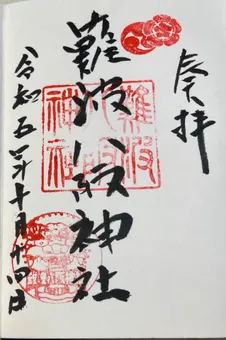 奉拝
難波八阪神社
難波
八阪
神社
令和五年十月廿四日